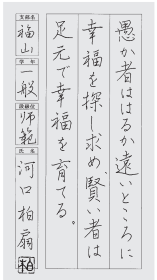 愚か者ははるか遠いところに
幸福を探し求め、賢い者は
足元で幸福を育てる。
支部名
福山
学年
一般
段級位
師範
氏名
河口柏扇
柏